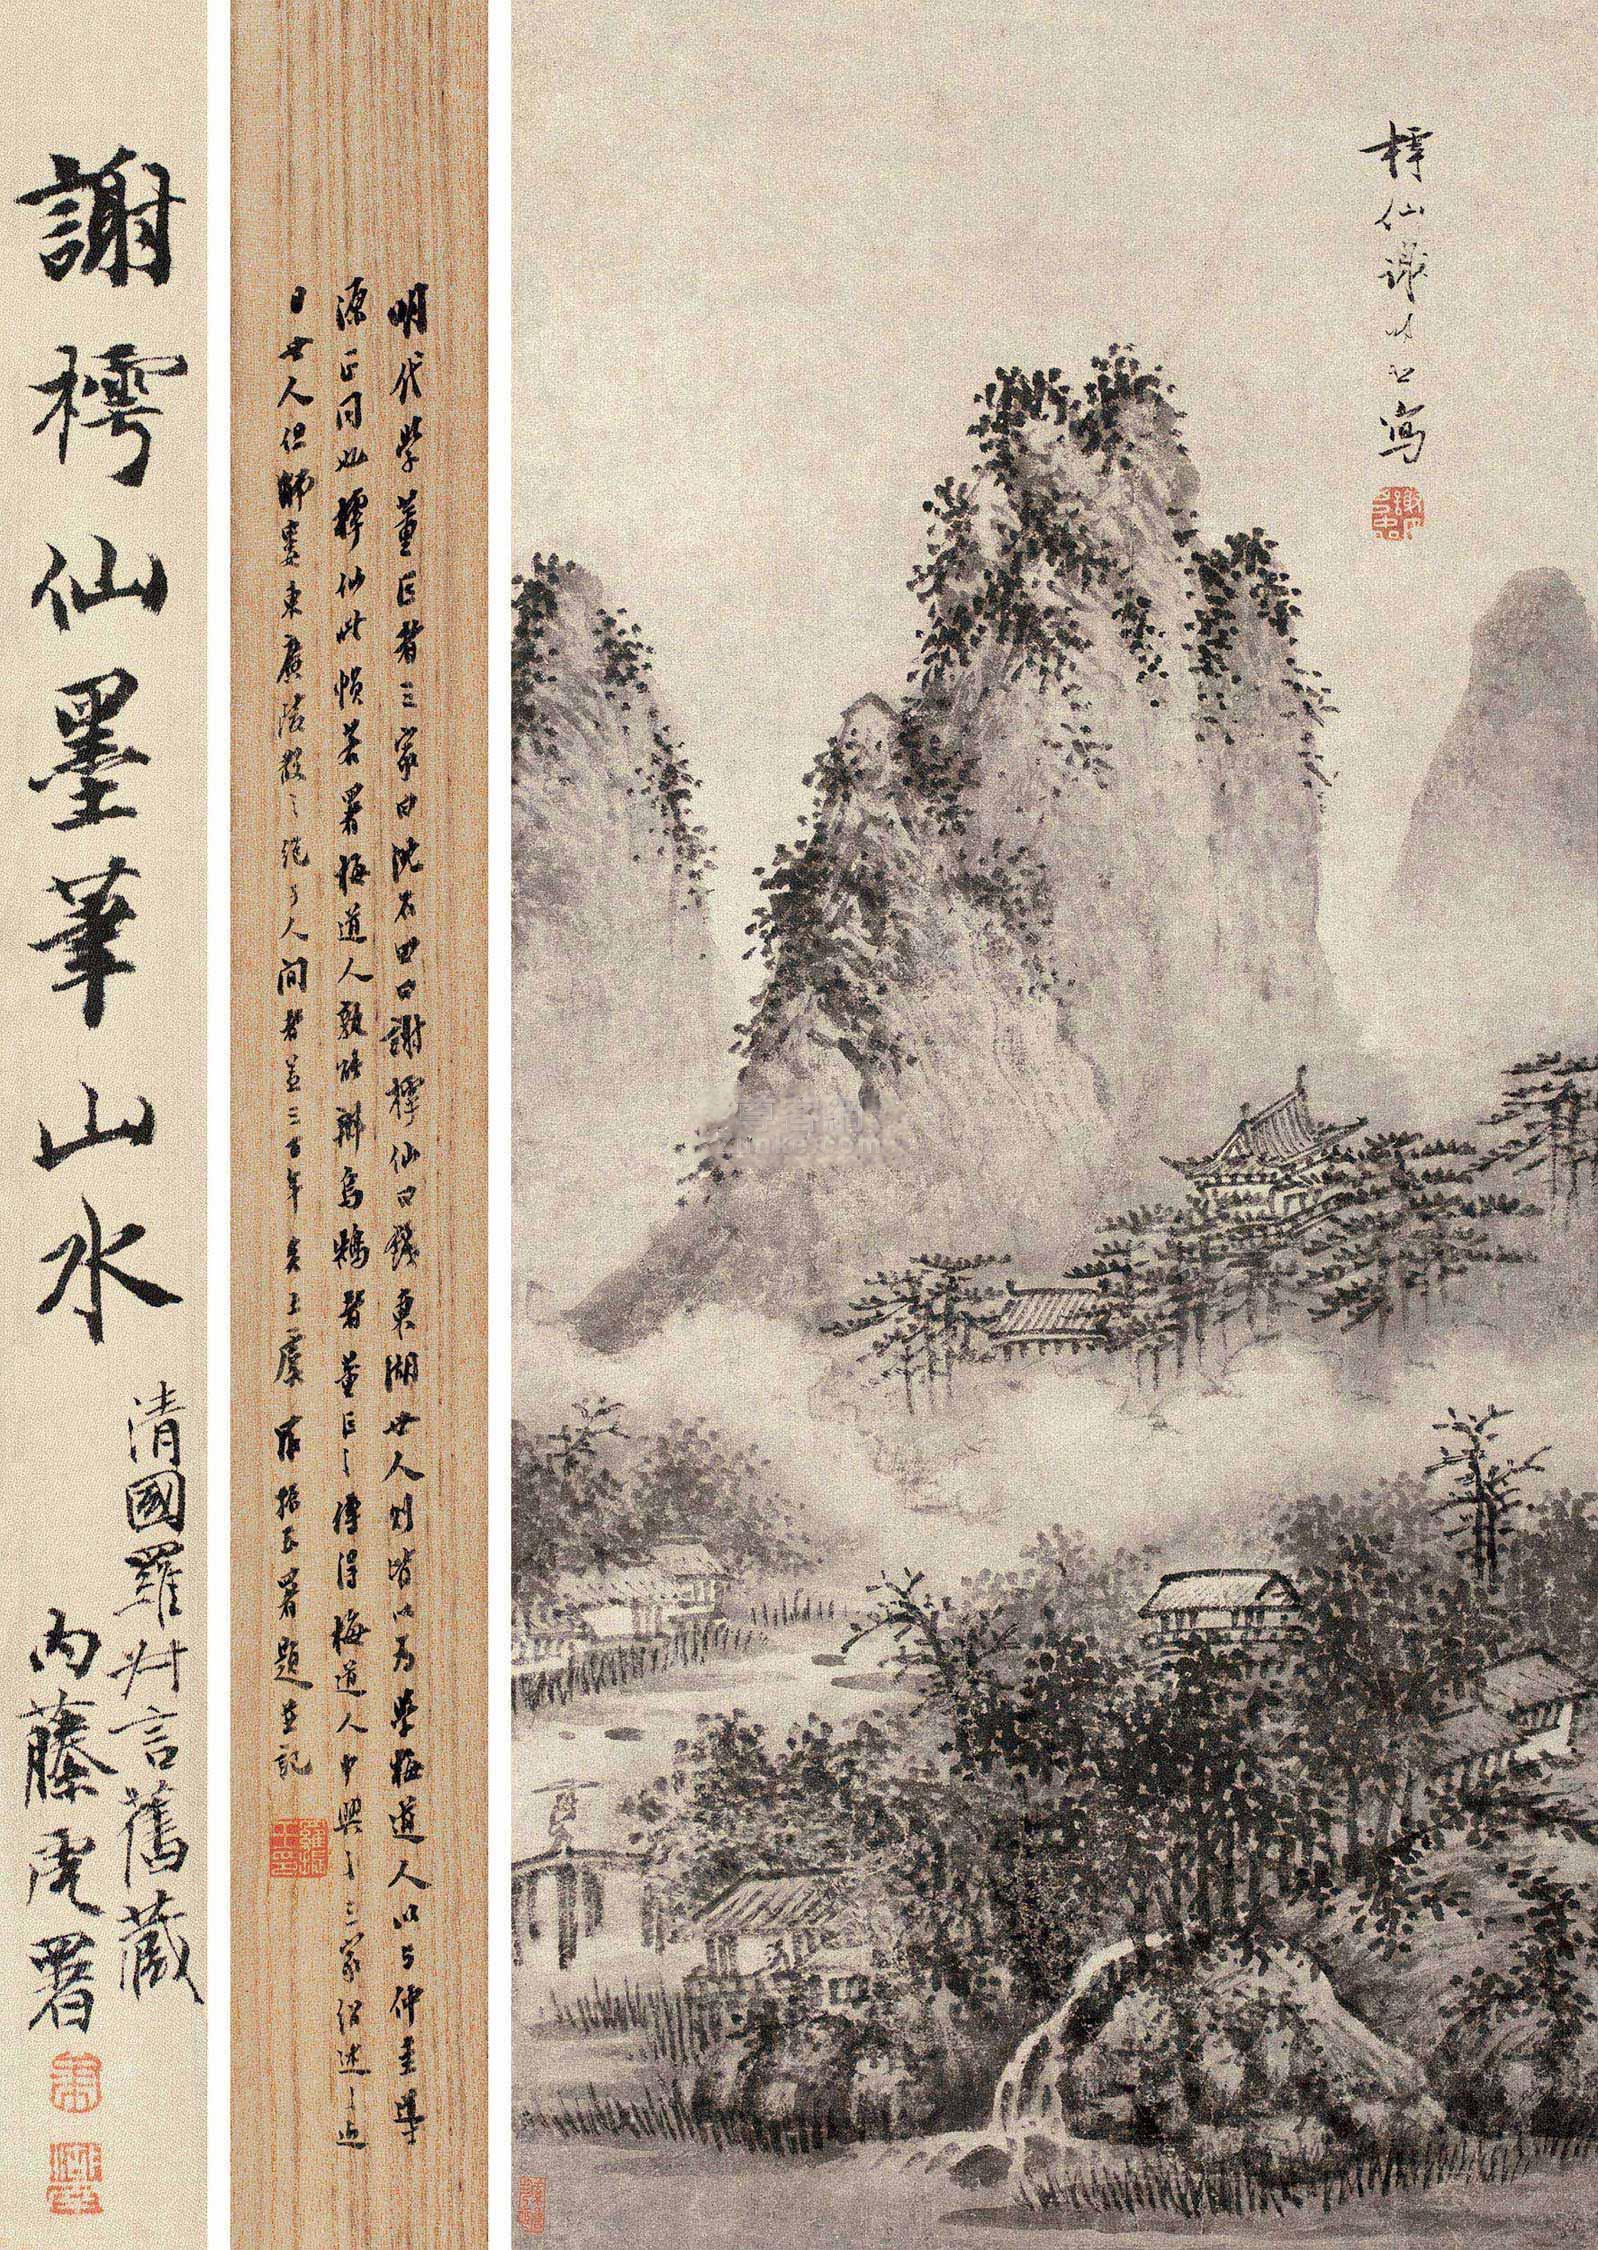 樗仙謝時臣寫
明代學董巨者三家曰沈石田曰謝樗仙曰錢東湖世人則皆以為學梅道人以与仲圭導
源正同也樗仙此幀若署梅道人孰能辨焉鶴者董巨之傳得梅道人中興之三家紹述之近
日世人但師婁東廣陵散之絕于人間者蓋三百年矣上虞羅振玉署題并記
謝樗仙墨筆山水
清國羅叔言舊藏
内藤虎署